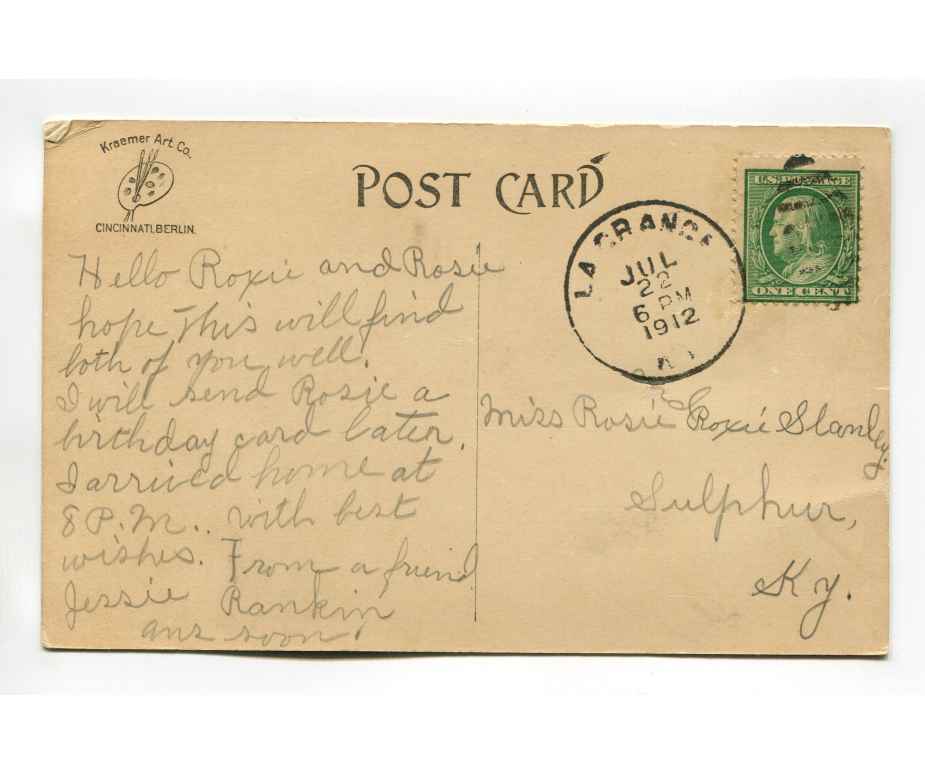 Kraemer Art Co.
CINCINNATI. BERLIN.
POST CARD
LA GRANGE
JUL
22
6 PM
1912
U.S. POSTAGE
ONE CENT
Hello Roxie and Rosie
hope This will find
both of you well.
I will send Rosie a
birthday card later.
I arrived home at
8 P.M. with best
wishes. From a friend
Jessie Rankin
ans soon
Miss Rosie & Roxie Stanley.
Sulphur,
Ky.